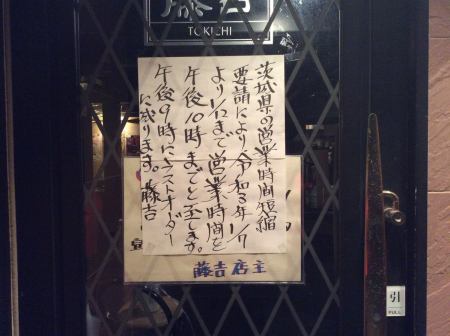 藤吉
TOKICHI
茨城県の営業時間短縮
要請により令和3年1/7
より1/12まで営業時間を
午後10時までと至します。
午後9時にラストオーダー
に成ります。藤吉
藤吉店主
引
PULL